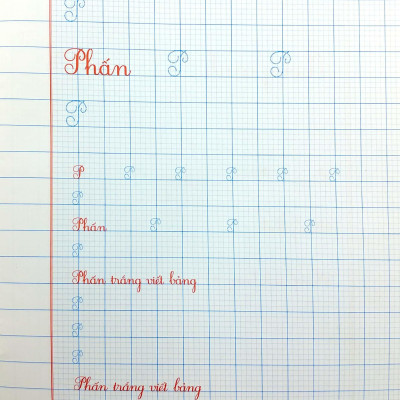 P
Phấn P P
P
P P P P P P
P
Phấn P P P
P
Phấn trắng viết bảng
P
P
P
Phấn trắng viết bảng